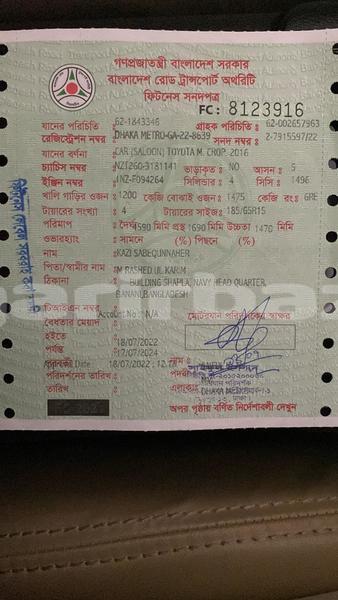 গণপ্রজাতন্ত্রী বাংলাদেশ সরকার
বাংলাদেশ রোড ট্রান্সপোর্ট অথরিটি
ফিটনেস সনদপত্র
FC: 8123916
যানের পরিচিতি : 62-1843346 গ্রাহক পরিচিতি : 62-002657963
রেজিস্ট্রেশন নম্বর : DHAKA METRO-GA-22-8639 সনদ নম্বর : 2-7915597/22
যানের বর্ণনা : CAR (SALOON) TOYOTA M. CROP. 2016
চ্যাসিস নম্বর : NZT260-3181141 ভাড়াকৃত : NO আসন : 5
ইঞ্জিন নম্বর : 1NZ-F094264 সিলিন্ডার : 4 সিসি : 1496
খালি গাড়ির ওজন : 1200 কেজি বোঝাই ওজন : 1475 কেজি রং : GRE
টায়ারের সংখ্যা : 4 টায়ারের সাইজ : 185/65R15
পরিমাপ : দৈর্ঘ্য 4590 মিমি প্রস্থ 1690 মিমি উচ্চতা 1470 মিমি
ওভারহ্যাং : সামনে (%) পিছনে (%)
নাম : KAZI SABEQUNNAHER
পিতা/স্বামীর নাম : M RASHED UL KARIM
ঠিকানা : BUILDING SHAPLA, NAVY HEAD QUARTER,
BANANI, BANGLADESH
টিআইএন নম্বর : Account No: N/A মোটরযান পরিদর্শকের স্বাক্ষর
বৈধতার মেয়াদ
হইতে : 18/07/2022
পর্যন্ত : 17/07/2024
Date : 18/07/2022 নাম :
পরিদর্শনের তারিখ : পদবী :
তারিখ : এলাকা : DHAKA METRO-1
অপর পৃষ্ঠায় বর্ণিত নির্দেশাবলী দেখুন